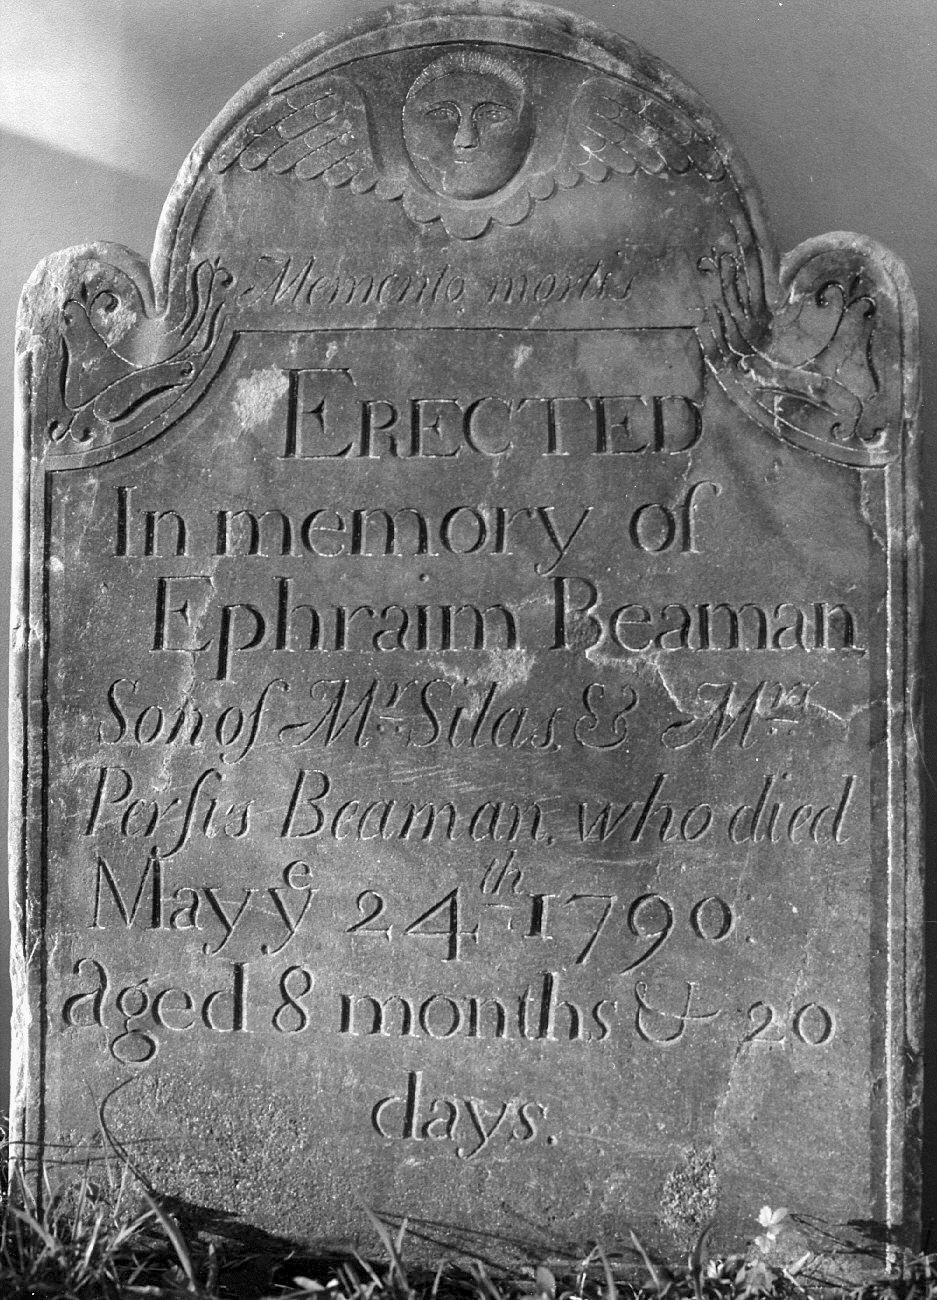 Memento mortis
ERECTED
In memory of
Ephraim Beaman
Son of Mr. Silas, & Mrs.
Perſis Beaman, who died
May yͤ 24th 1790.
aged 8 months & 20
days.